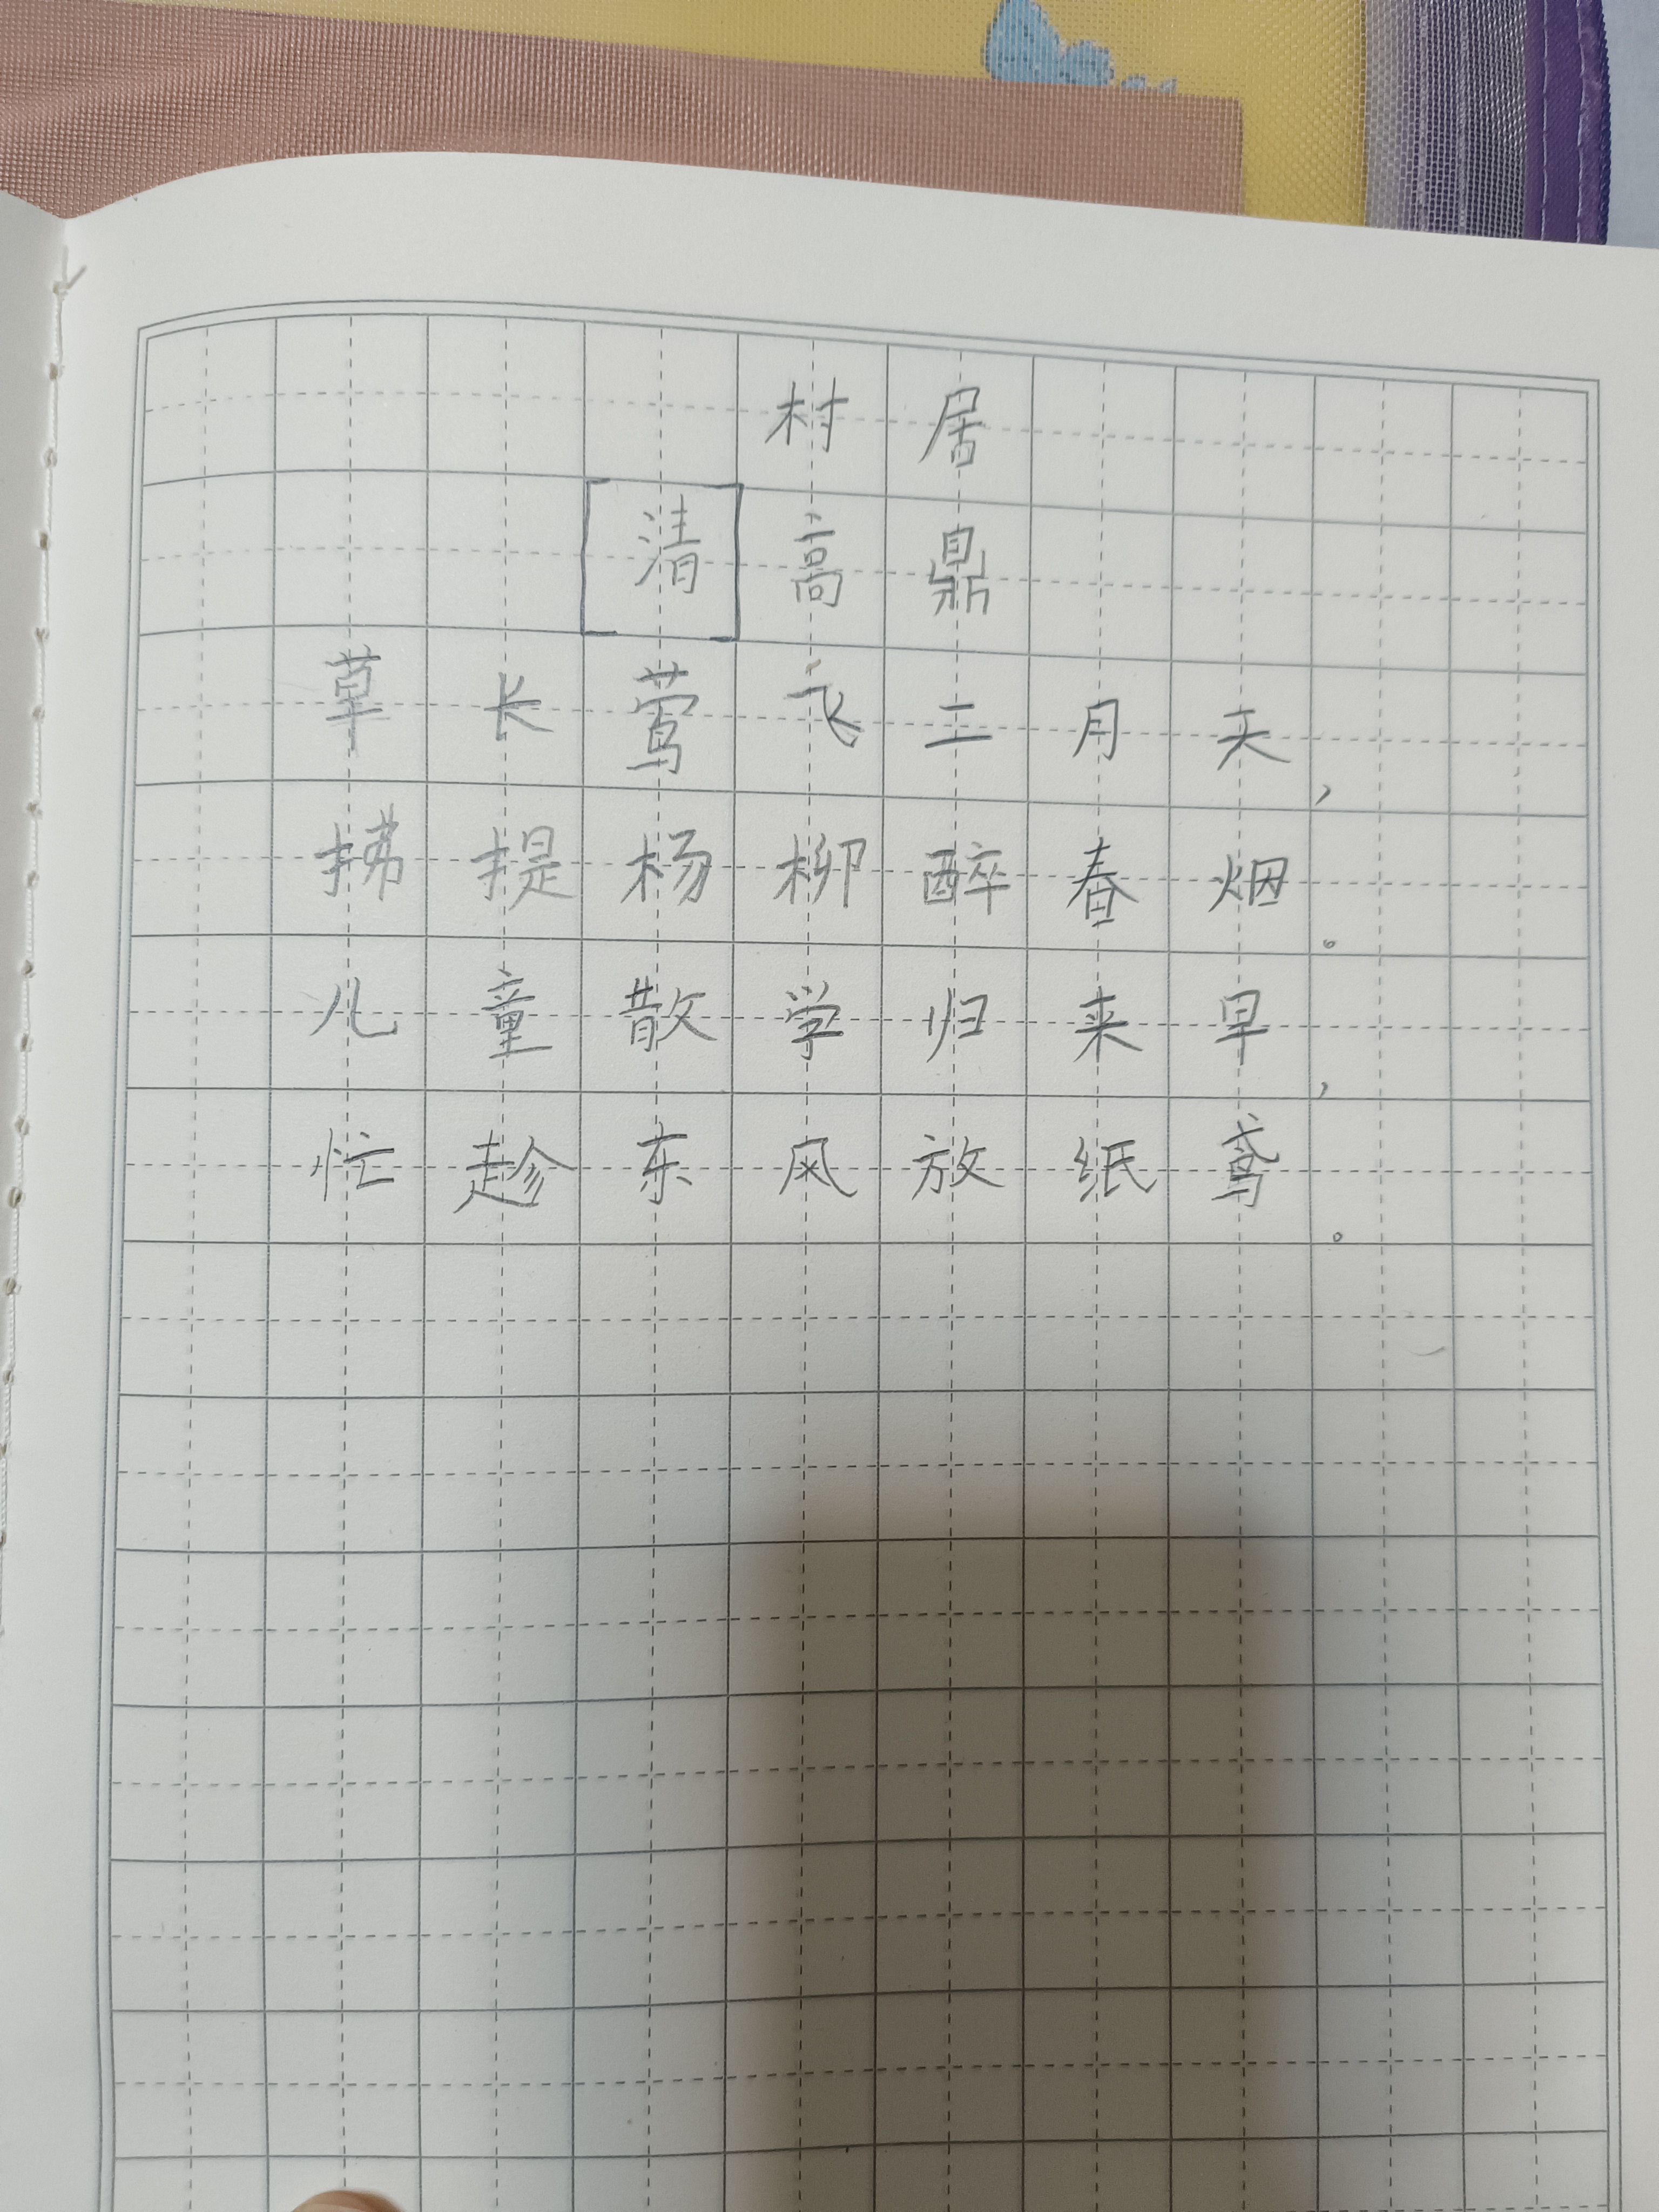 村居
[清]高鼎
草长莺飞二月天，
拂提杨柳醉春烟。
儿童散学归来早，
忙趁东风放纸鸢。